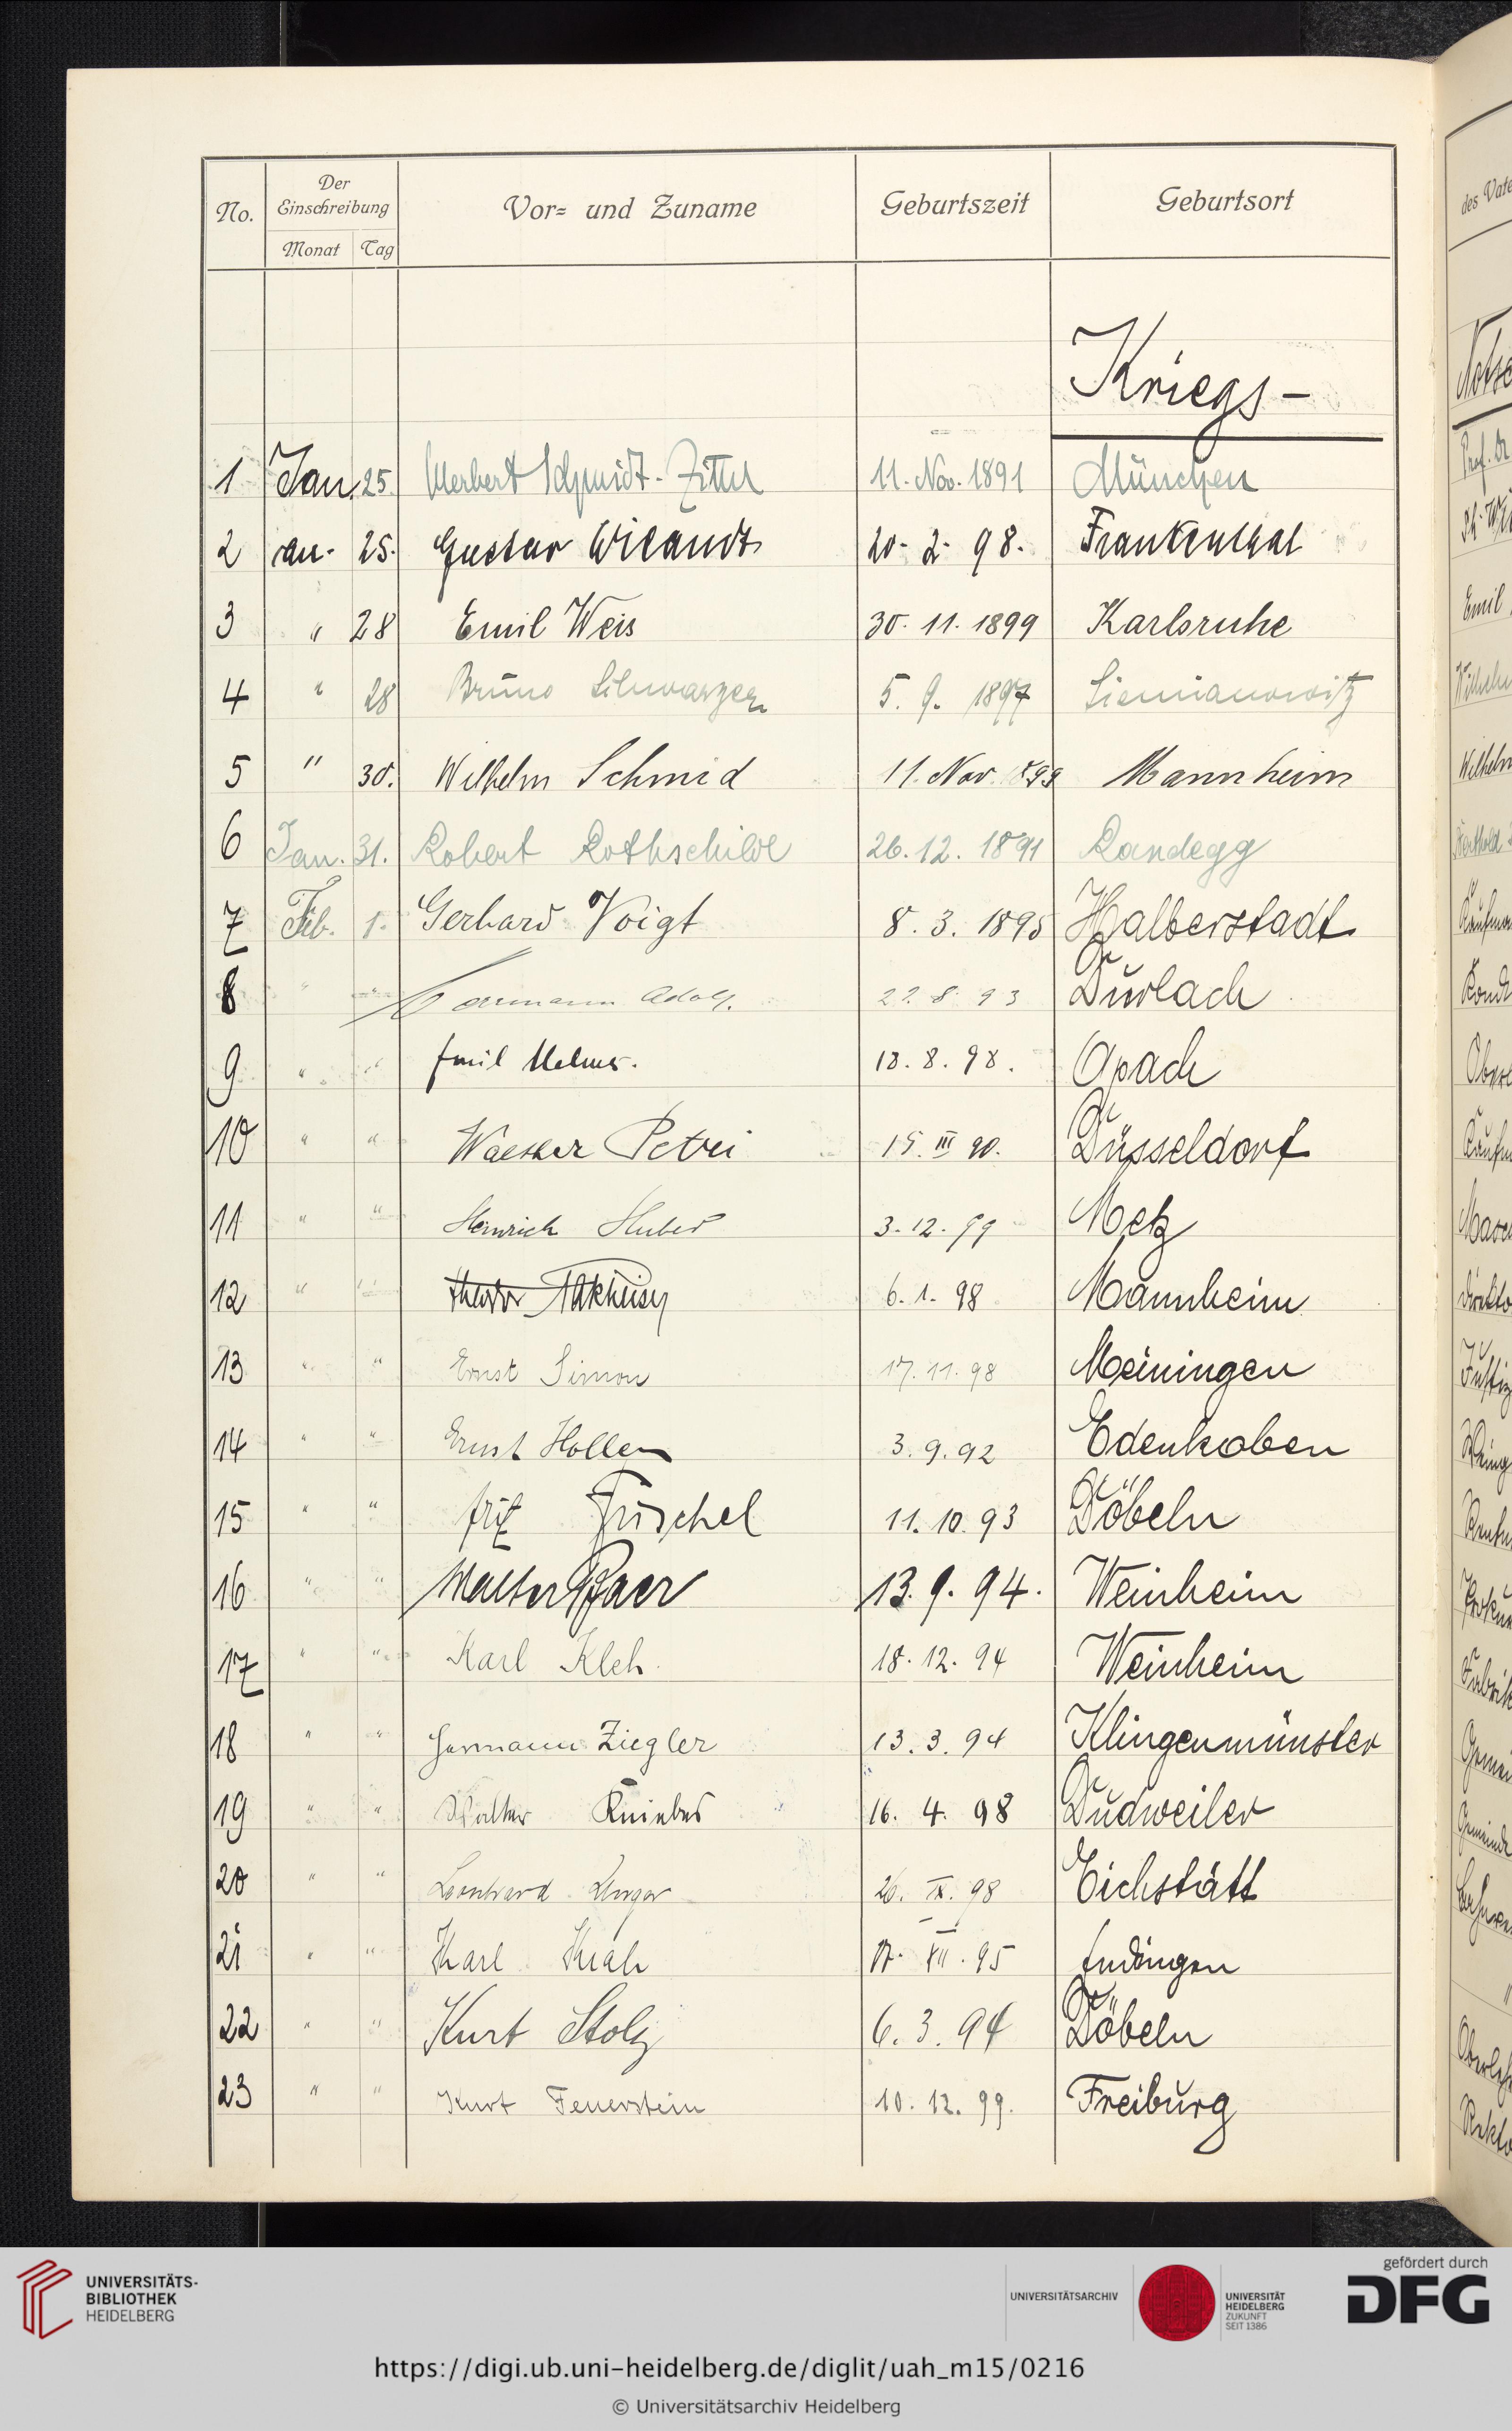 No. Der Einschreibung Monat Tag Vor= und Zuname Geburtszeit Geburtsort
des
Kriegs-
1 Jan. 25. Schmidt-Zittel 11. Nov. 1891 München
2 an. 25. Gustav Wieandt 20. 2. 98. Frankenthal
3 " 28 Emil Weis 30. 11. 1899 Karlsruhe
4 " 28 Bruno Schwarzer 5. 9. 1897 Siemianowitz
5 " 30. Wilhelm Schmid 11. Nov. 1899 Mannheim
6 Jan. 31. Robert Rothschild 26. 12. 1891 Randegg
7 Feb. 1. Gerhard Voigt 8. 3. 1895 Halberstadt
8 " " Herrmann Adolf. 22. 8. 93 Durlach
9 " " Emil 18. 8. 98. Apach
10 " " Walther Petri 15. III 90. Düsseldorf
11 " " Heinrich Huber 3. 12. 99 Metz
12 " " Theodor 6. 1. 98 Mannheim
13 " " Ernst Simon 17. 11. 98 Meiningen
14 " " Ernst Hollen 3. 9. 92 Edenkoben
15 " " Fritz 11. 10. 93 Döbeln
16 " " Walter Baer 13. 9. 94. Weinheim
17 " " Karl Kleh 18. 12. 94 Weinheim
18 " " Hermann Ziegler 13. 3. 94 Klingenmünster
19 " " Walter 16. 4. 98 Dudweiler
20 " " Leonhard Unger 26. IX. 98 Eichstätt
21 " " Karl XII. 95 Endingen
22 " " Kurt Stolz 6. 3. 94 Döbeln
23 " " Kurt Feuerstein 10. 12. 99. Freiburg
Emil
Wilhelm
UNIVERSITÄTS-
BIBLIOTHEK
HEIDELBERG
UNIVERSITÄTSARCHIV
UNIVERSITÄT
HEIDELBERG
ZUKUNFT
SEIT 1386
gefördert durch
DFG
https://digi.ub.uni-heidelberg.de/diglit/uah_m15/0216
© Universitätsarchiv Heidelberg